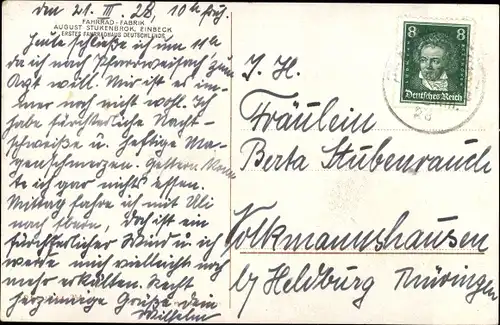 den 21. III. 28, 10 h früh.
FAHRRAD-FABRIK
AUGUST STUKENBROK, EINBECK
ERSTES FAHRRADHAUS DEUTSCHLANDS
Heute schließe ich um 11 h
da ich nach Pfarrweisach zum
Arzt will. Mir ist es im-
mer noch nicht wohl. Ich
habe fürchterliche Nacht-
schweiße u. heftige Ma-
genschmerzen. Gestern konn-
te ich gar nichts essen.
Mittag fahre ich mit Uli
nach Ebern, doch ist ein
fürchterlicher Wind u. ich
werde mich vielleicht noch
mehr erkälten. Recht
herzinnige Grüße dein
Wilhelm
8 8
Deutsches Reich
28
I. H.
Fräulein
Berta Stubenrauch
Volkmannshausen
b/ Heldburg Thüringen